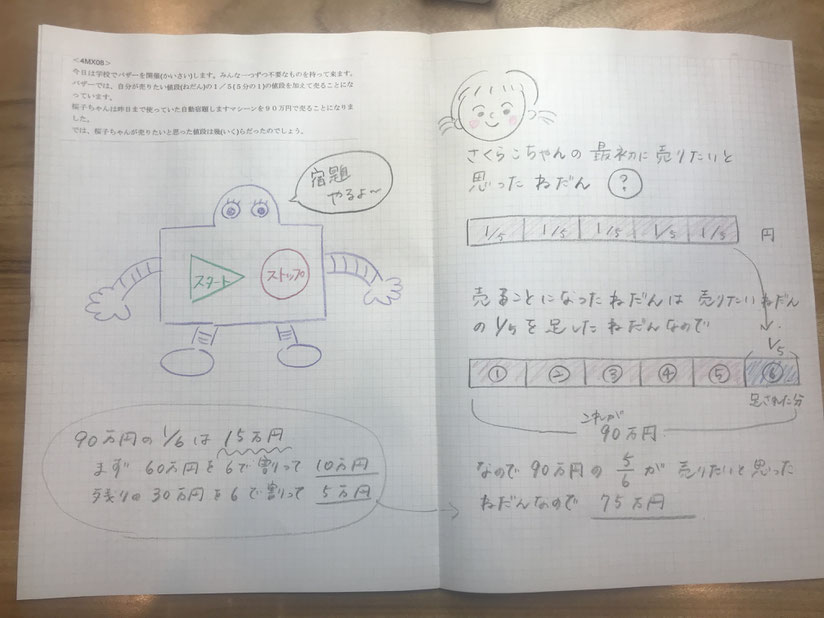 <4MX08>
今日は学校でバザーを開催(かいさい)します。みんな一つずつ不要なものを持って来ます。
バザーでは、自分が売りたい値段(ねだん)の1/5(5分の1)の値段を加えて売ることにな
っています。
桜子ちゃんは昨日まで使っていた自動宿題しますマシーンを90万円で売ることになりま
した。
では、桜子ちゃんが売りたいと思った値段は幾(いく)らだったのでしょう。
宿題
やるよ〜
スタート
ストップ
90万円の1/6は15万円
まず60万円を6で割って10万円
残りの30万円を6で割って5万円
さくらこちゃんの最初に売りたいと
思ったねだん ?
1/5 1/5 1/5 1/5 1/5 円
売ることになったねだんは売りたいねだん
の1/5を足したねだんなので
1/5
① ② ③ ④ ⑤ ⑥
足された分
これが
90万円
なので90万円の5/6が売りたいと思った
ねだんなので 75万円